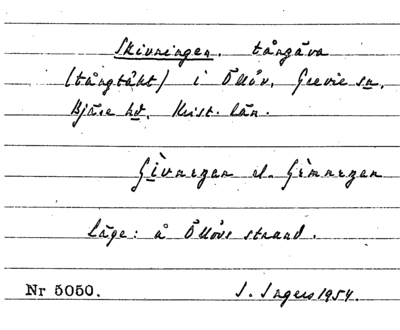 Skivningen, tångäva
(tångtäkt) i Öllöv, Grevie sn,
Bjäre hd, Krist. län.
Gìvnezen el. Gìmnezen
Läge: å Öllövs strand.
Nr 5050. I. Ingers 1954.